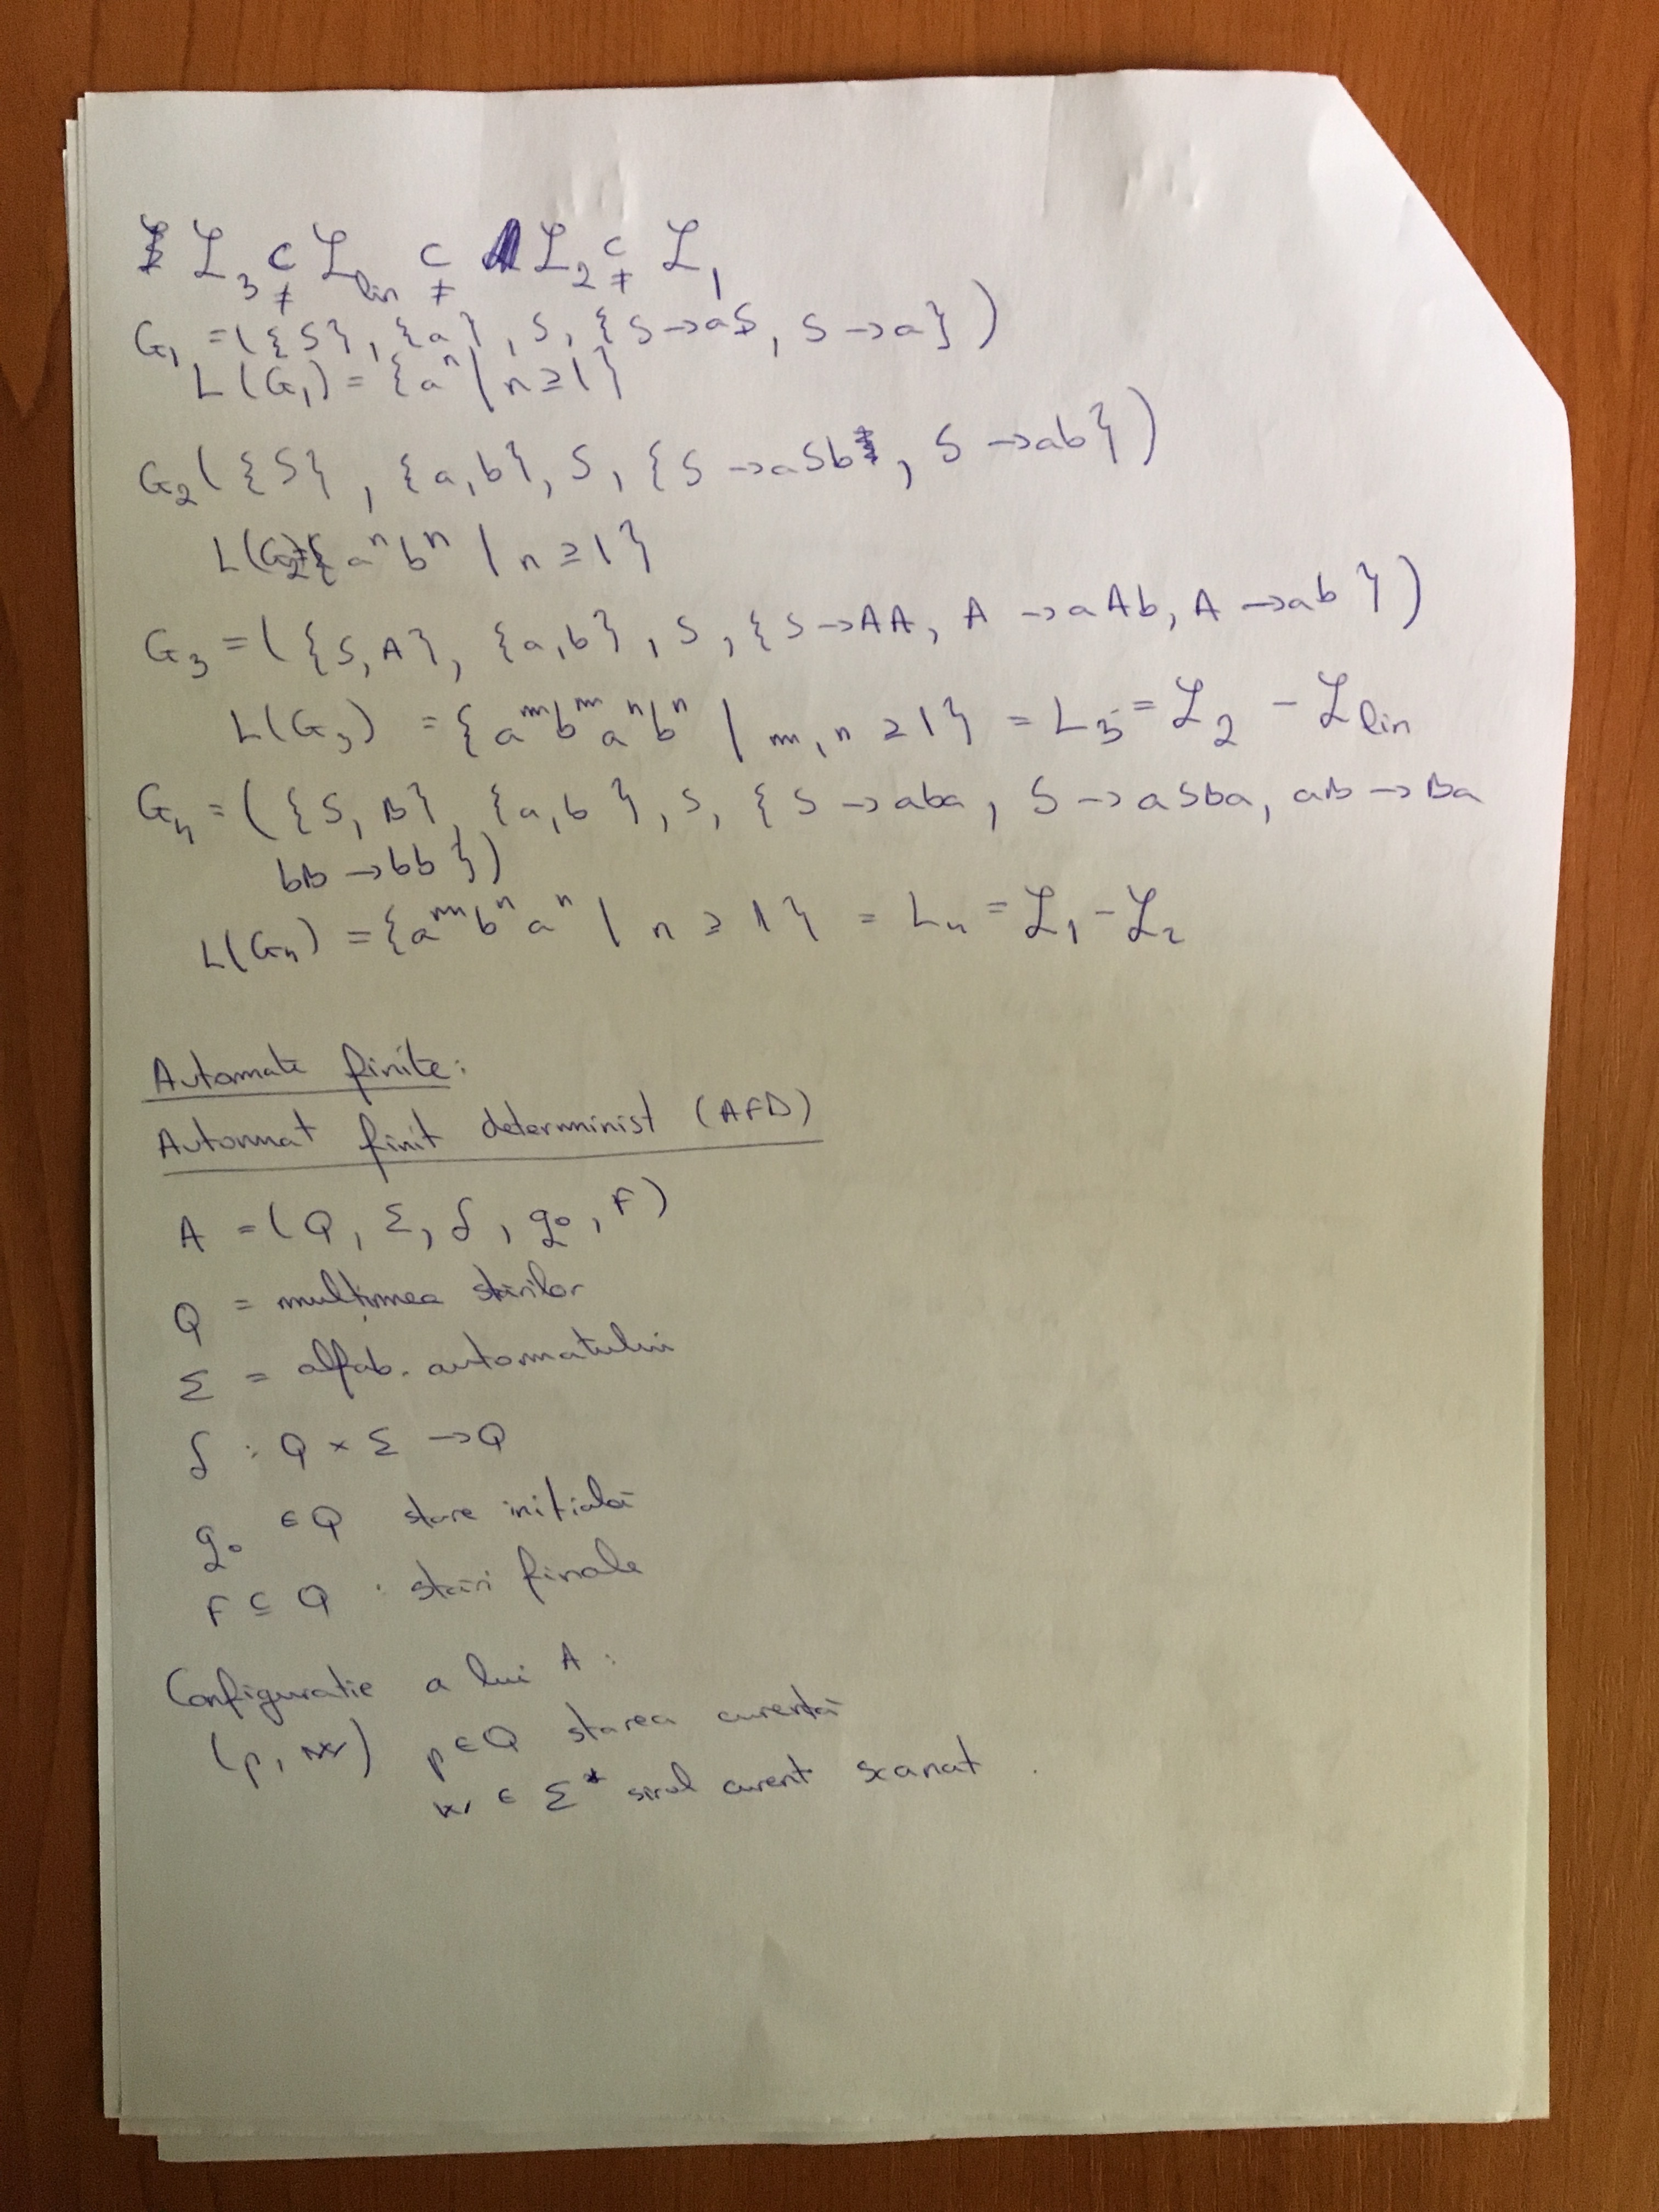 ℒ₃ ⊊ ℒlin ⊊ ℒ₂ ⊊ ℒ₁
G₁ = ({S}, {a}, S, {S → aS, S → a})
L(G₁) = {aⁿ | n ≥ 1}
G₂ ({S}, {a,b}, S, {S → aSb, S → ab})
L(G₂) = {aⁿbⁿ | n ≥ 1}
G₃ = ({S,A}, {a,b}, S, {S → AA, A → aAb, A → ab})
L(G₃) = {aᵐbᵐaⁿbⁿ | m,n ≥ 1} = L₃ = ℒ₂ - ℒlin
G₄ = ({S,B}, {a,b}, S, {S → aba, S → aSba, aB → Ba
bB → bb})
L(G₄) = {aᵐbⁿaⁿ | n ≥ 1} = L₄ = ℒ₁ - ℒ₂
Automate finite:
Automat finit determinist (AFD)
A = (Q, Σ, δ, q₀, F)
Q = mulțimea stărilor
Σ = alfab. automatului
δ : Q × Σ → Q
q₀ ∈ Q stare inițială
F ⊆ Q : stări finale
Configuratie a lui A:
(p, w) p ∈ Q starea curentă
w ∈ Σ* sirul curent scanat.